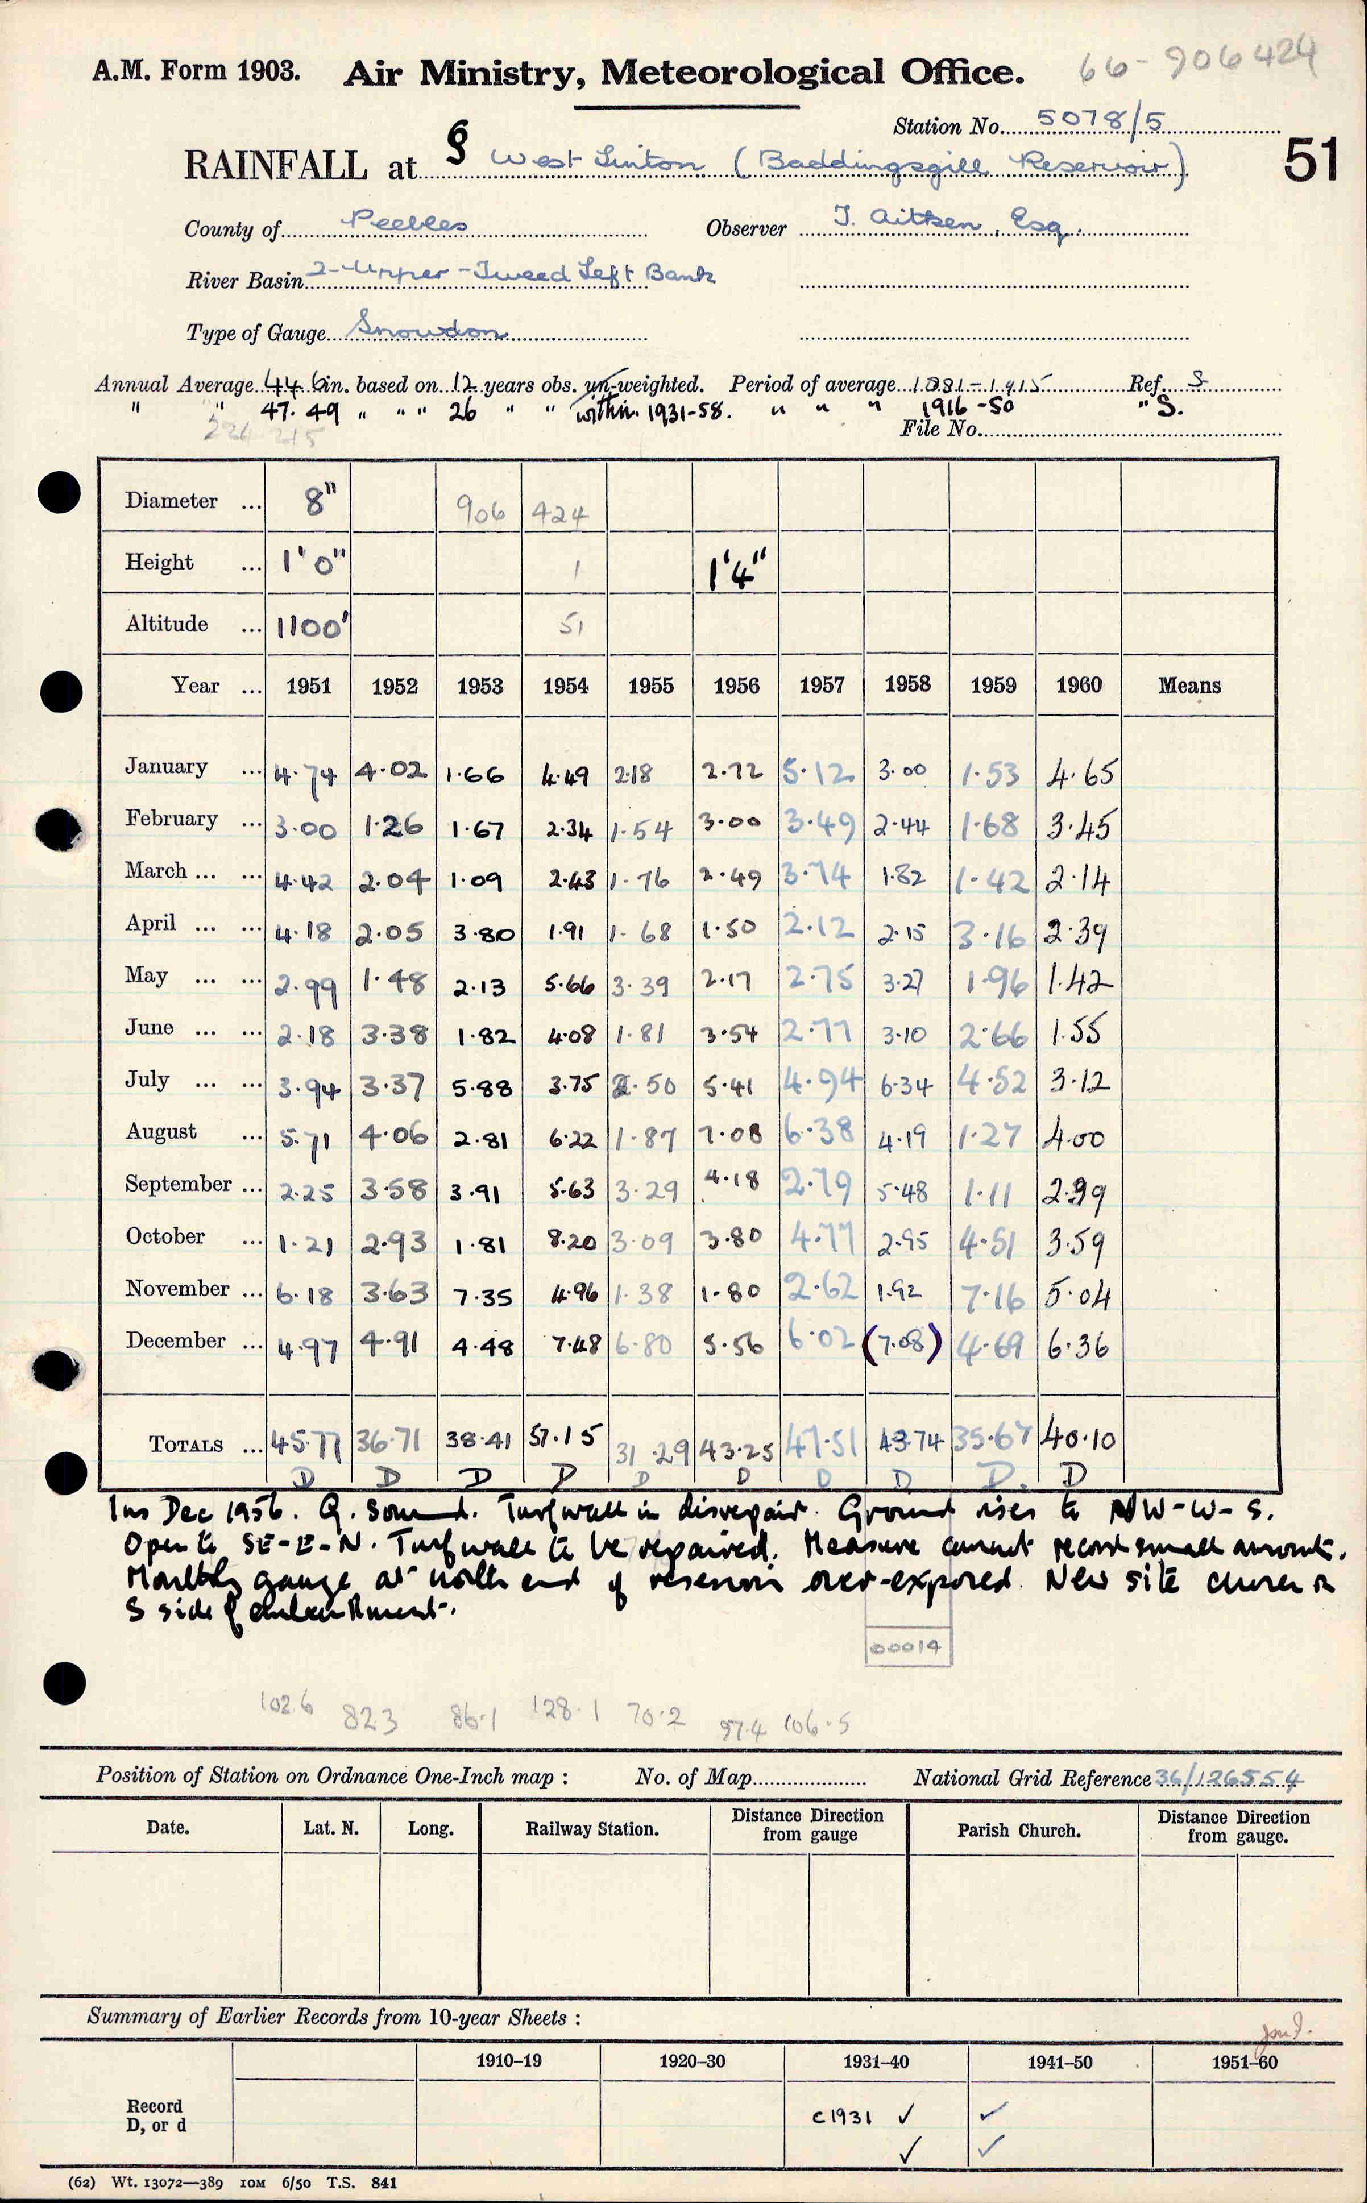 A.M. Form 1903. Air Ministry, Meteorological Office. 66-906424
Station No. 5078/5
RAINFALL at § West Linton (Baddingsgill Reservoir) 51
County of Peebles Observer T. Aitken, Esq.
River Basin 2-Upper-Tweed Left Bank
Type of Gauge Snowdon
Annual Average 44.6 in. based on 12 years obs. un-weighted. Period of average 1881-1915 Ref. S
" " 47.49 " " " 26 " " within 1931-58. " " " 1916-50 " S.
224 215 File No.
Diameter ... 8" 906 424
Height ... 1' 0" 1 1'4"
Altitude ... 1100' 51
Year ... 1951 1952 1953 1954 1955 1956 1957 1958 1959 1960 Means
January ... 4.74 4.02 1.66 4.49 2.18 2.72 5.12 3.00 1.53 4.65
February ... 3.00 1.26 1.67 2.34 1.54 3.00 3.49 2.44 1.68 3.45
March ... ... 4.42 2.04 1.09 2.43 1.76 2.49 3.74 1.82 1.42 2.14
April ... ... 4.18 2.05 3.80 1.91 1.68 1.50 2.12 2.15 3.16 2.39
May ... ... 2.99 1.48 2.13 5.66 3.39 2.17 2.75 3.27 1.96 1.42
June ... ... 2.18 3.38 1.82 4.08 1.81 3.54 2.77 3.10 2.66 1.55
July ... ... 3.94 3.37 5.88 3.75 2.50 5.41 4.94 6.34 4.52 3.12
August ... 5.71 4.06 2.81 6.22 1.87 7.08 6.38 4.19 1.27 4.00
September ... 2.25 3.58 3.91 5.63 3.29 4.18 2.79 5.48 1.11 2.39
October ... 1.21 2.93 1.81 8.20 3.09 3.80 4.77 2.95 4.51 3.59
November ... 6.18 3.63 7.35 4.96 1.38 1.80 2.62 1.92 7.16 5.04
December ... 4.97 4.91 4.48 7.48 6.80 5.56 6.02 (7.08) 4.69 6.36
TOTALS ... 45.77 36.71 38.41 57.15 31.29 43.25 47.51 43.74 35.67 40.10
D D D D D D D D D. D
Ins Dec 1956. G. Sound. Turf wall in disrepair. Ground rises to NW-W-S.
Open to SE-E-N. Turf wall to be repaired. Measure cannot record small amounts.
Monthly gauge at north end of reservoir over-exposed. New site chosen on
S side of embankment.
00014
102.6 823 86.1 128.1 70.2 97.4 106.5
Position of Station on Ordnance One-Inch map : No. of Map National Grid Reference 36/126554
Date. Lat. N. Long. Railway Station. Distance Direction from gauge Parish Church. Distance Direction from gauge.
Summary of Earlier Records from 10-year Sheets :
1910–19 1920–30 1931–40 1941–50 1951–60
Record D, or d c1931 ✓ ✓
✓ ✓
(62) Wt. 13072—389 10M 6/50 T.S. 841